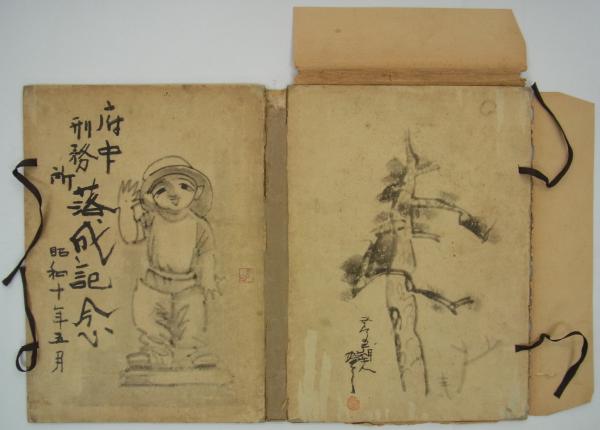 府中
刑務所
落成記念
昭和十年五月